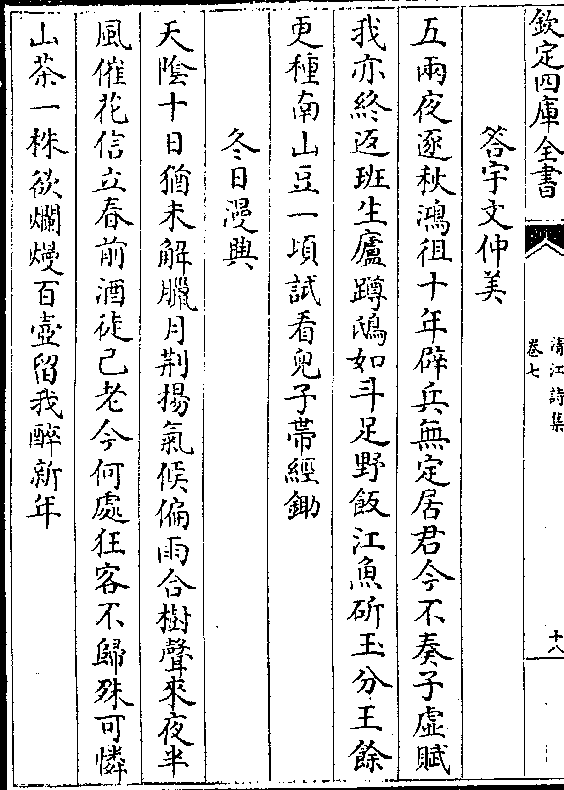 欽定四庫全書
清江詩集
卷七
十八
答宇文仲美
五兩夜逐秋鴻徂十年辟兵無定居君今不奏子虛賦
我亦終返班生廬蹲鴟如斗足野飯江魚斫玉分王餘
更種南山豆一頃試看兒子帶經鋤
冬日漫興
天陰十日猶未解臘月荆揚氣候偏雨合樹聲來夜半
風催花信立春前酒徒已老今何處狂客不歸殊可憐
山茶一株欲爛熳百壺留我醉新年